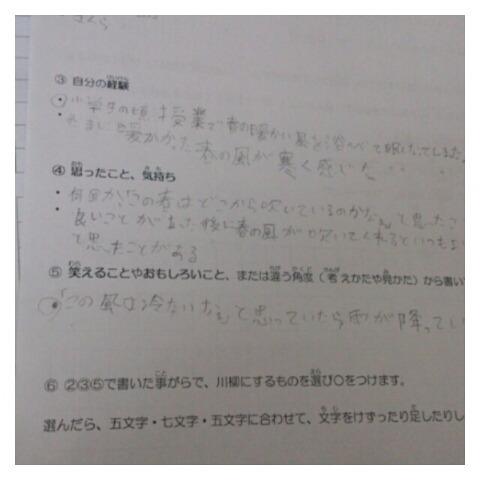 さくら
③ 自分の経験
・小学生の頃、授業で春の暖かい風を浴びて眠たくてしまった
・ 暖かかった春の風が寒く感じた
④ 思ったこと、気持ち
・何回か、この春はどこから吹いているのかなぁと思ったこ
・良いことがあった後に春の風が吹いてくれるといつもよ
と思ったことがある
⑤ 笑えることやおもしろいこと、または違う角度（考えかたや見かた）から書い
・「この風は冷たいなぁ」と思っていたら雨が降ってい
⑥ ②③⑤で書いた事がらで、川柳にするものを選び○をつけます。
選んだら、五文字・七文字・五文字に合わせて、文字をけずったり足したりし